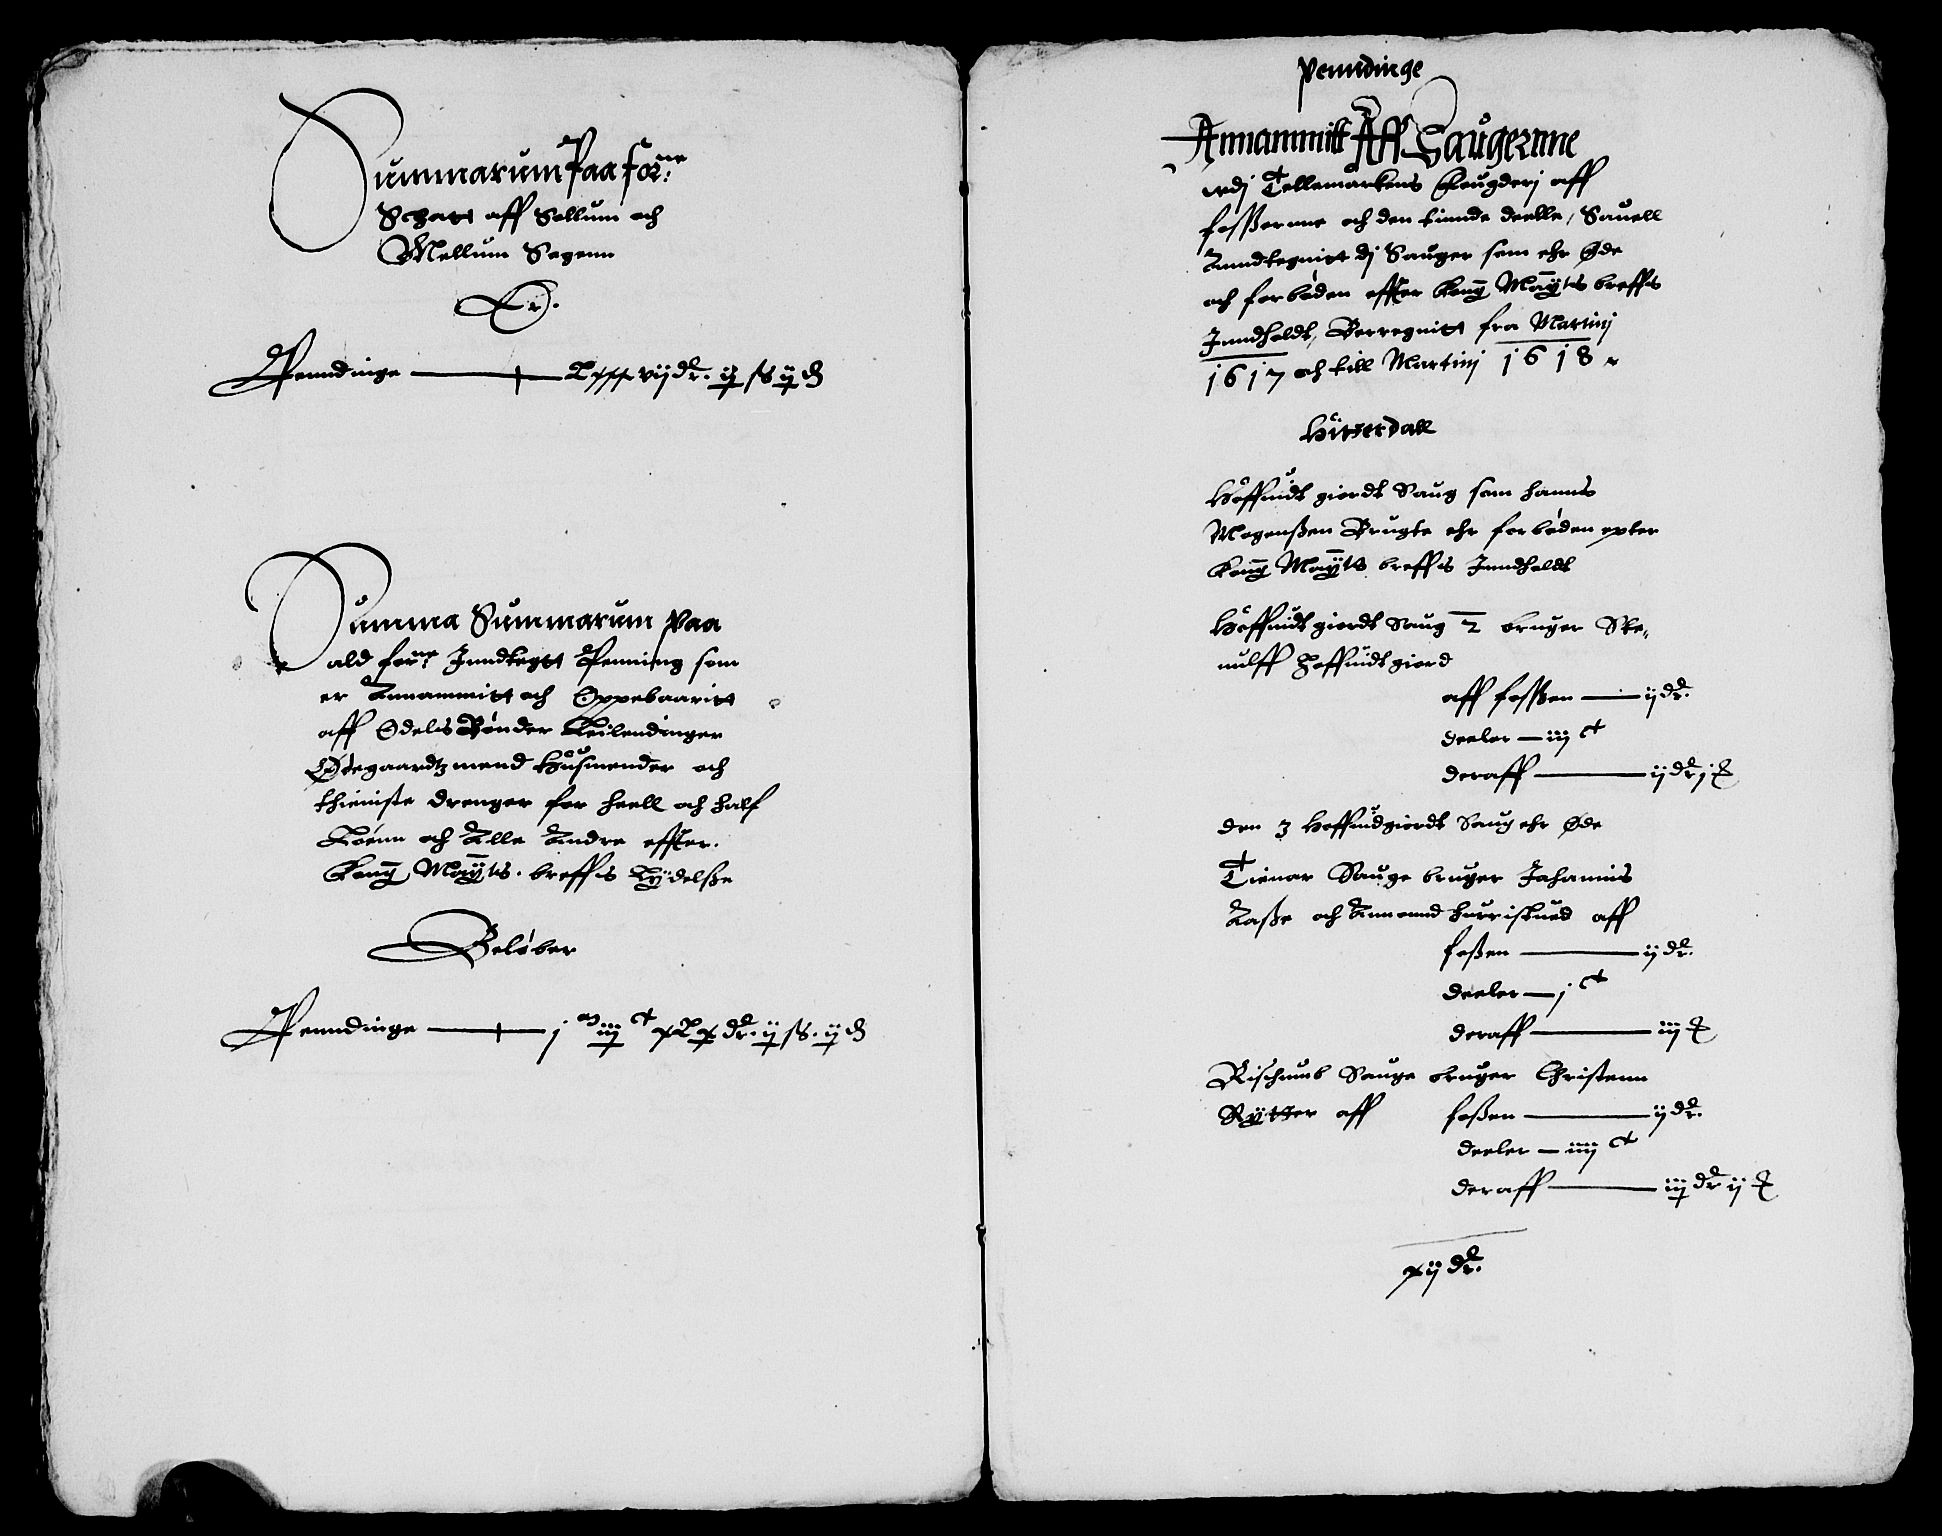 Summarum Paa for:ne
Schatt aff Sollum och
Mellum Sogenn
Er.
Penndinge — Lxxx vij dr. ij ß ij d
Summa Summarum paa
ald for:ne Inndtegtt Penning som
er Annammitt och Oppebaaritt
aff Odels Bønder Leilendinger
Ødegaardtzmend Husmender och
thieniste drenger for heell och half
Løenn och Alle Andre effter.
Kong: Maÿts. breffis Lÿdelsse
Beløber
Penndinge — j m iij c xLx dr. ij ß. ij d
Penndinge
Annammitt Aff Saugerne
udj Tellemarkens Leugderj aff
fosserne och den tiende deelle, Sauell
Anndtegnitt dj Sauger som ehr Øde
och forböden effter Kong: Maÿts breffis
Inndholdt, Berregnitt fra Martinj
1617 och till Martinj 1618
Hitterdall
Hoffuidt giordt Saug som hanns
Mogenssen Brugte ehr forböden epter
Kong: Maÿts breffis Inndholdt
Hoffuidt giordt Saug 2 bruger Ste,
nulff Hoffuidt giord
aff fossen — ij dr.
deeler — iij c
deraff — ij dr j
den 3 Hoffuidgiordt Saug ehr Øde
Tienar Sauge bruger Johannis
Aasse och Amonnd aff
fossen — ij dr.
deeler — j c
deraff — iij
Sauge bruger Christenn
Rÿtter aff fossen — ij dr.
deeler — iiij c
deraff — iij dr ij
xij dr.